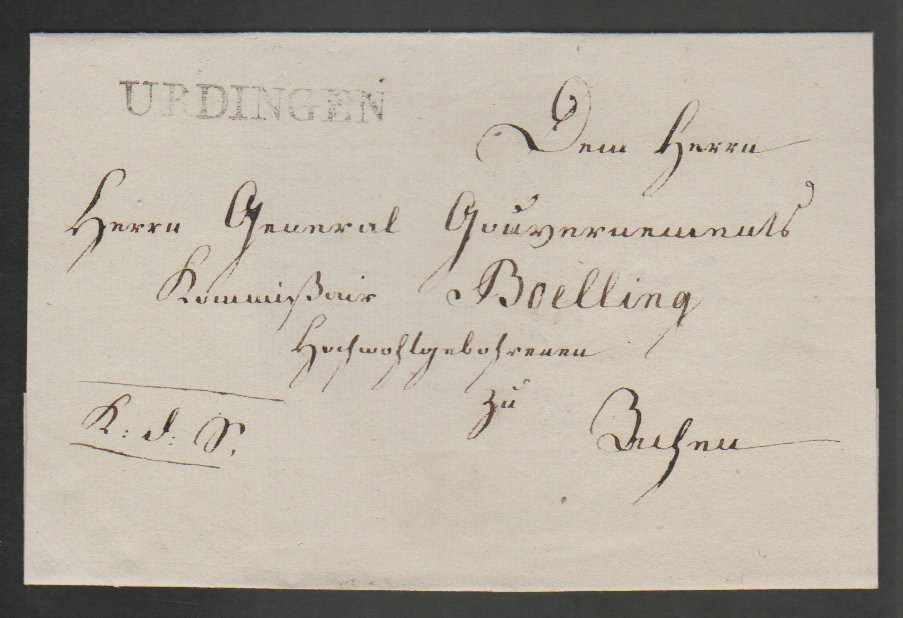 URDINGEN
Dem Herrn
Herrn General Gouvernements
Kommißair Boelling
Hochwohlgebohrenen
zu Aachen
K: d: S.